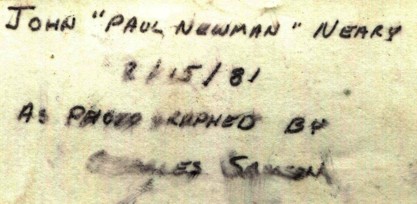 JOHN "PAUL NEWMAN" NEARY
2/15/81
AS PHOTOGRAPHED BY